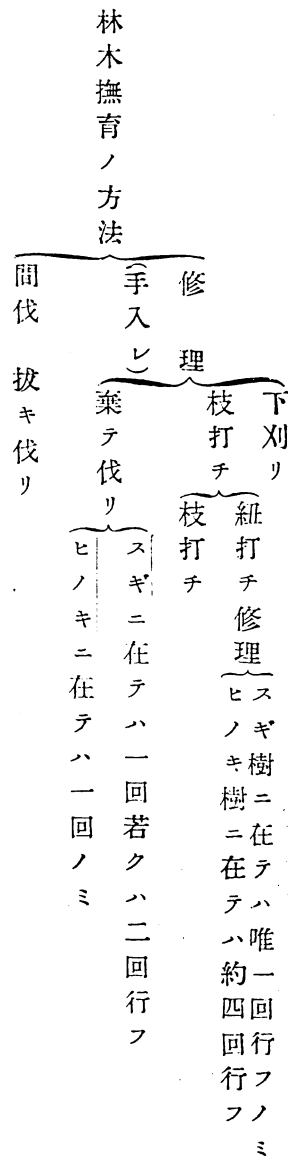 林木撫育ノ方法
修理
(手入レ)
下刈リ
枝打チ
紐打チ修理
スギ樹ニ在テハ唯一回行フノミ
ヒノキ樹ニ在テハ約四回行フ
枝打チ
棄テ伐リ
スギニ在テハ一回若クハ二回行フ
ヒノキニ在テハ一回ノミ
間伐 拔キ伐リ